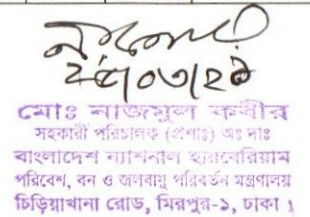 ২৪/০৩/২৪
মোঃ নাজমুল কবীর
সহকারী পরিচালক (প্রশাঃ) অঃ দাঃ
বাংলাদেশ ন্যাশনাল হারবেরিয়াম
পরিবেশ, বন ও জলবায়ু পরিবর্তন মন্ত্রণালয়
চিড়িয়াখানা রোড, মিরপুর-১, ঢাকা।